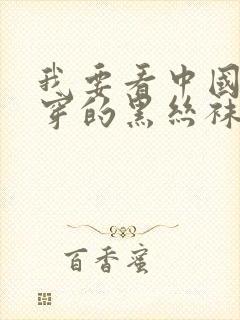 我要看中國
穿的黑丝袜
百香蜜